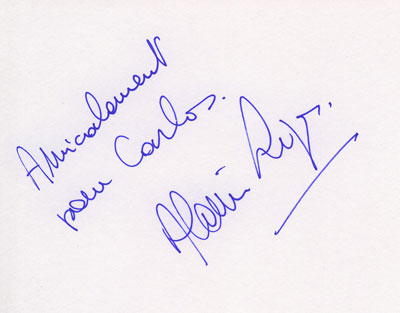 Amicalement
pour Carlos.
Alain